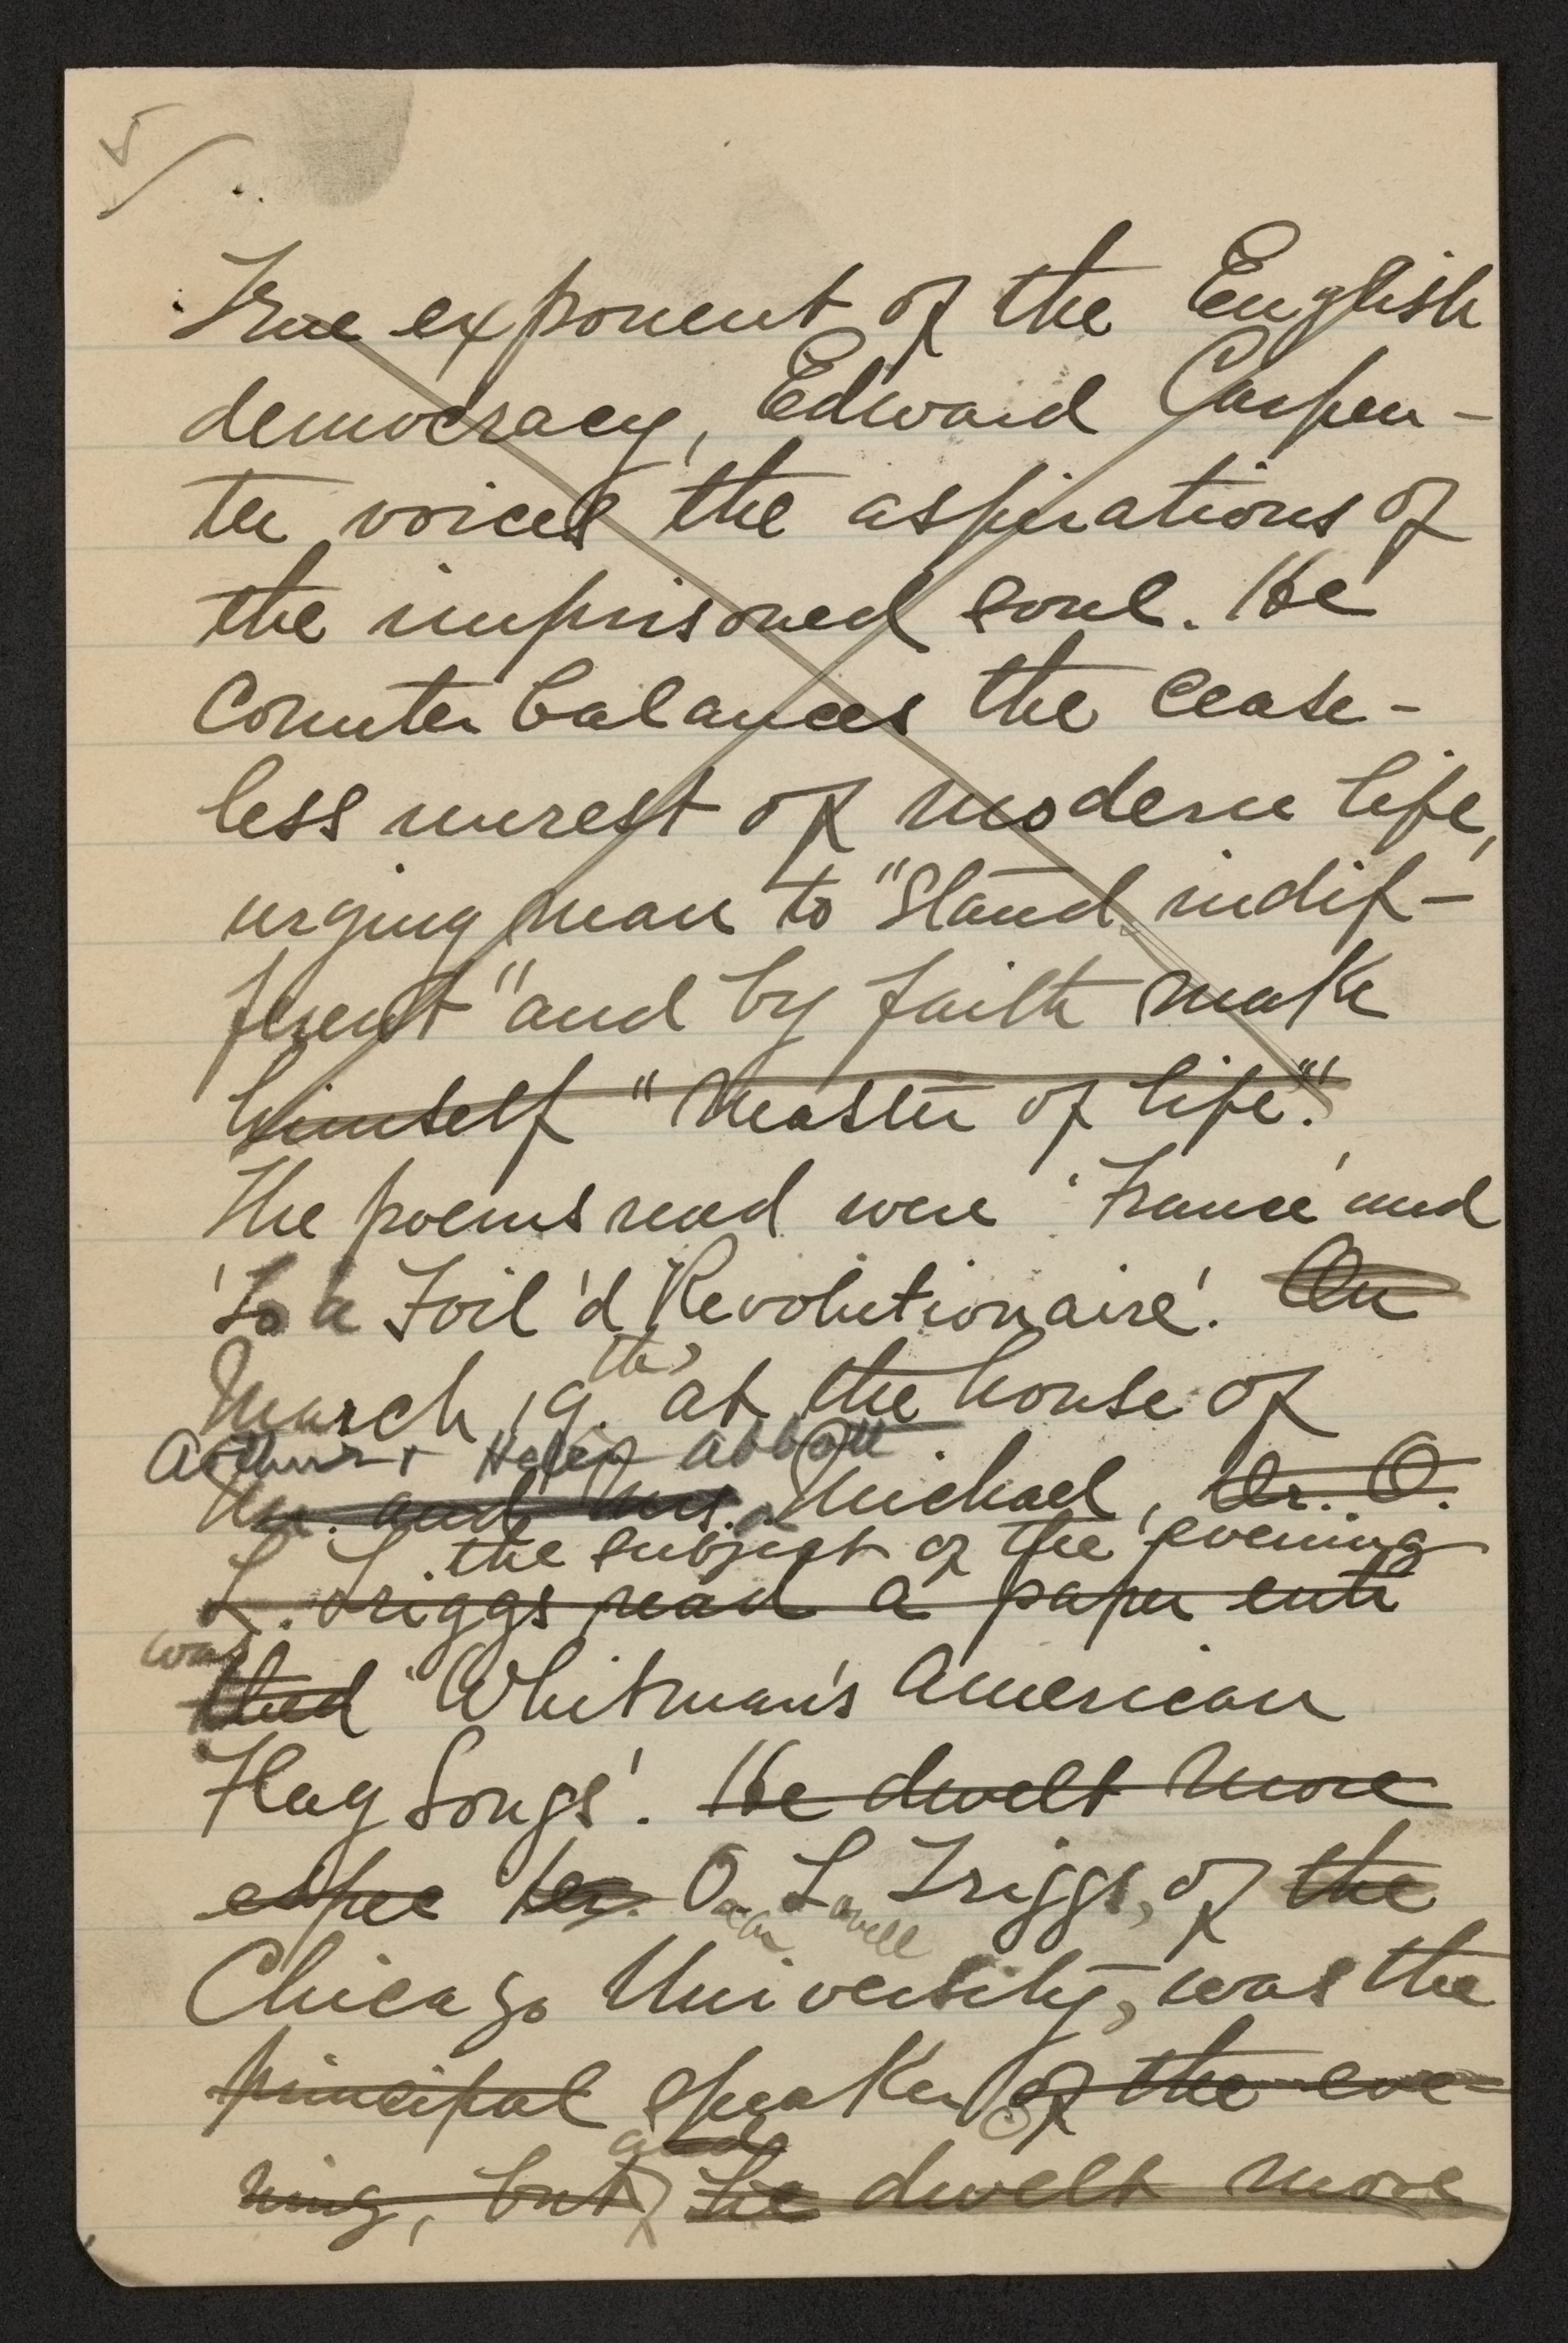 True exponent of the English
democracy, Edward Carpen-
ter voices the aspirations of
the imprisoned soul. He
Counter balances the cease-
less unrest of modern life,
urging man to "Stand indif-
ferent" and by faith make
himself "Master of life".
The poems read were 'France' and
'To a Foil'd Revolutionaire'. On
th
March 19. at the house of
Arthur + Helen Abbott
Mr. and Mrs. Michael, Dr. O.
the subject of the evening
L. Triggs read a paper enti
was
tled 'Whitman's American
Flag Songs'. He dwelt more
espec Dr. O. L. Triggs, of the
scar ovell
Chicago University, was the
principal speaker of the eve-
and
ning, but he dwelt more